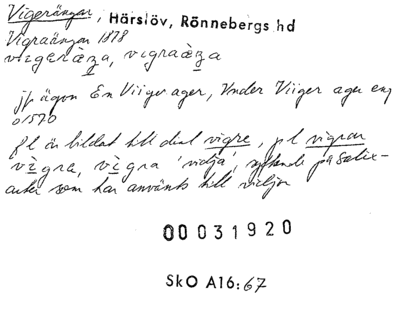 Vigerängar, Härslöv, Rönnebergs hd
Vigraängar 1878
jfr ägon En Viiger ager, Under Viiger ager eng
01570
fl är bildat till dial vigre, pl vigrar
vigra, vigra 'vidja', syftande på Salix-
arter som har använts till vidjor
00031920
SkO A16:67